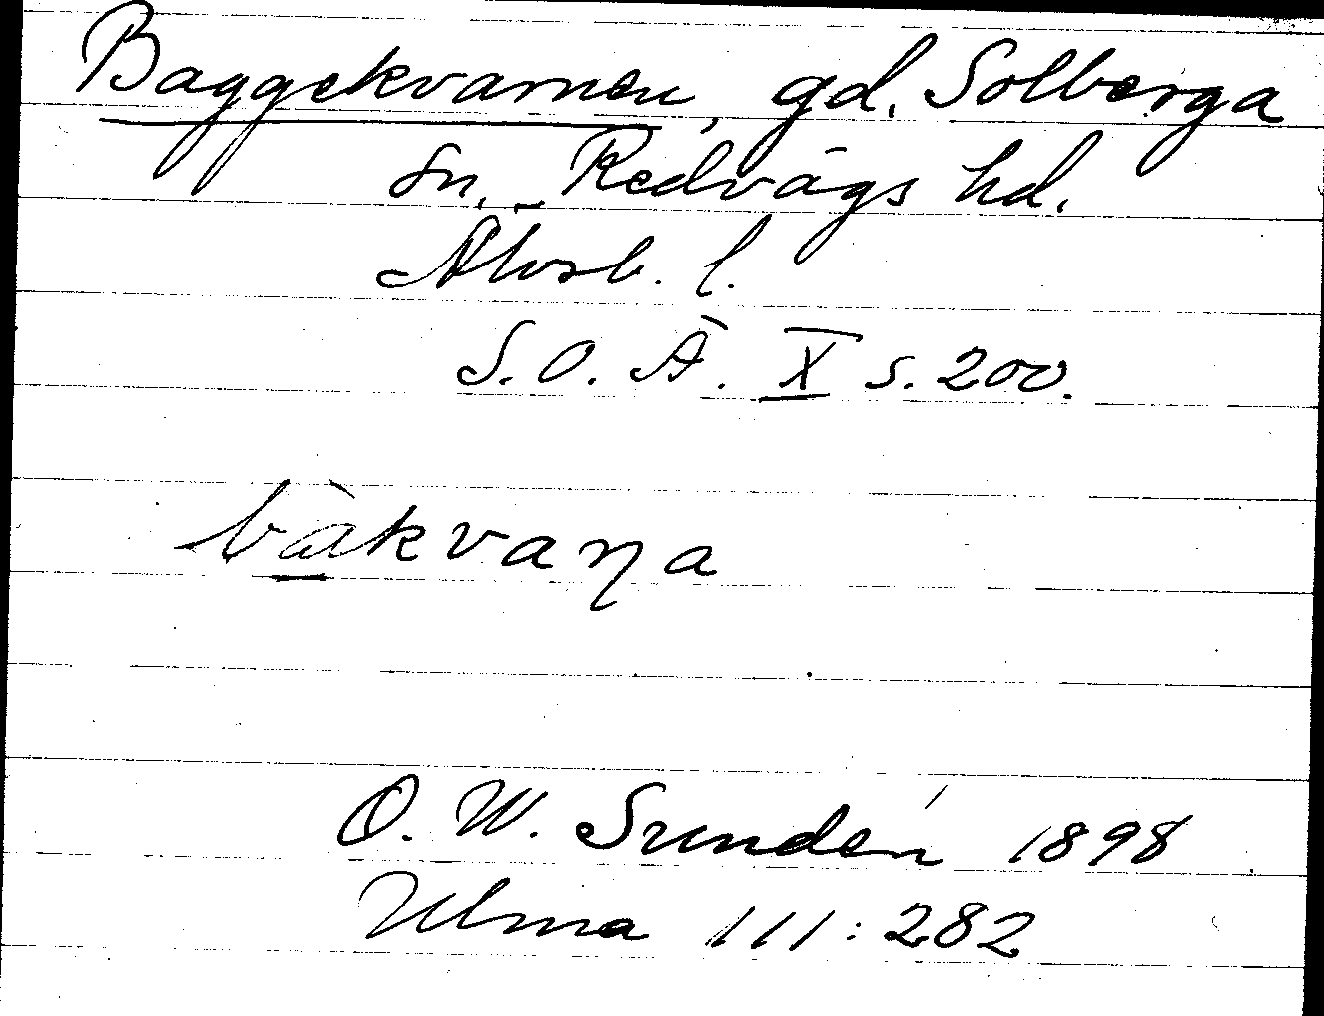 Baggekvarnen, gd. Solberga
sn. Redvägs hd.
Älvsb. l.
S. O. Ä. X s. 200.
bàkvaɳa
O. W. Sundén 1898
Ulma 111:282